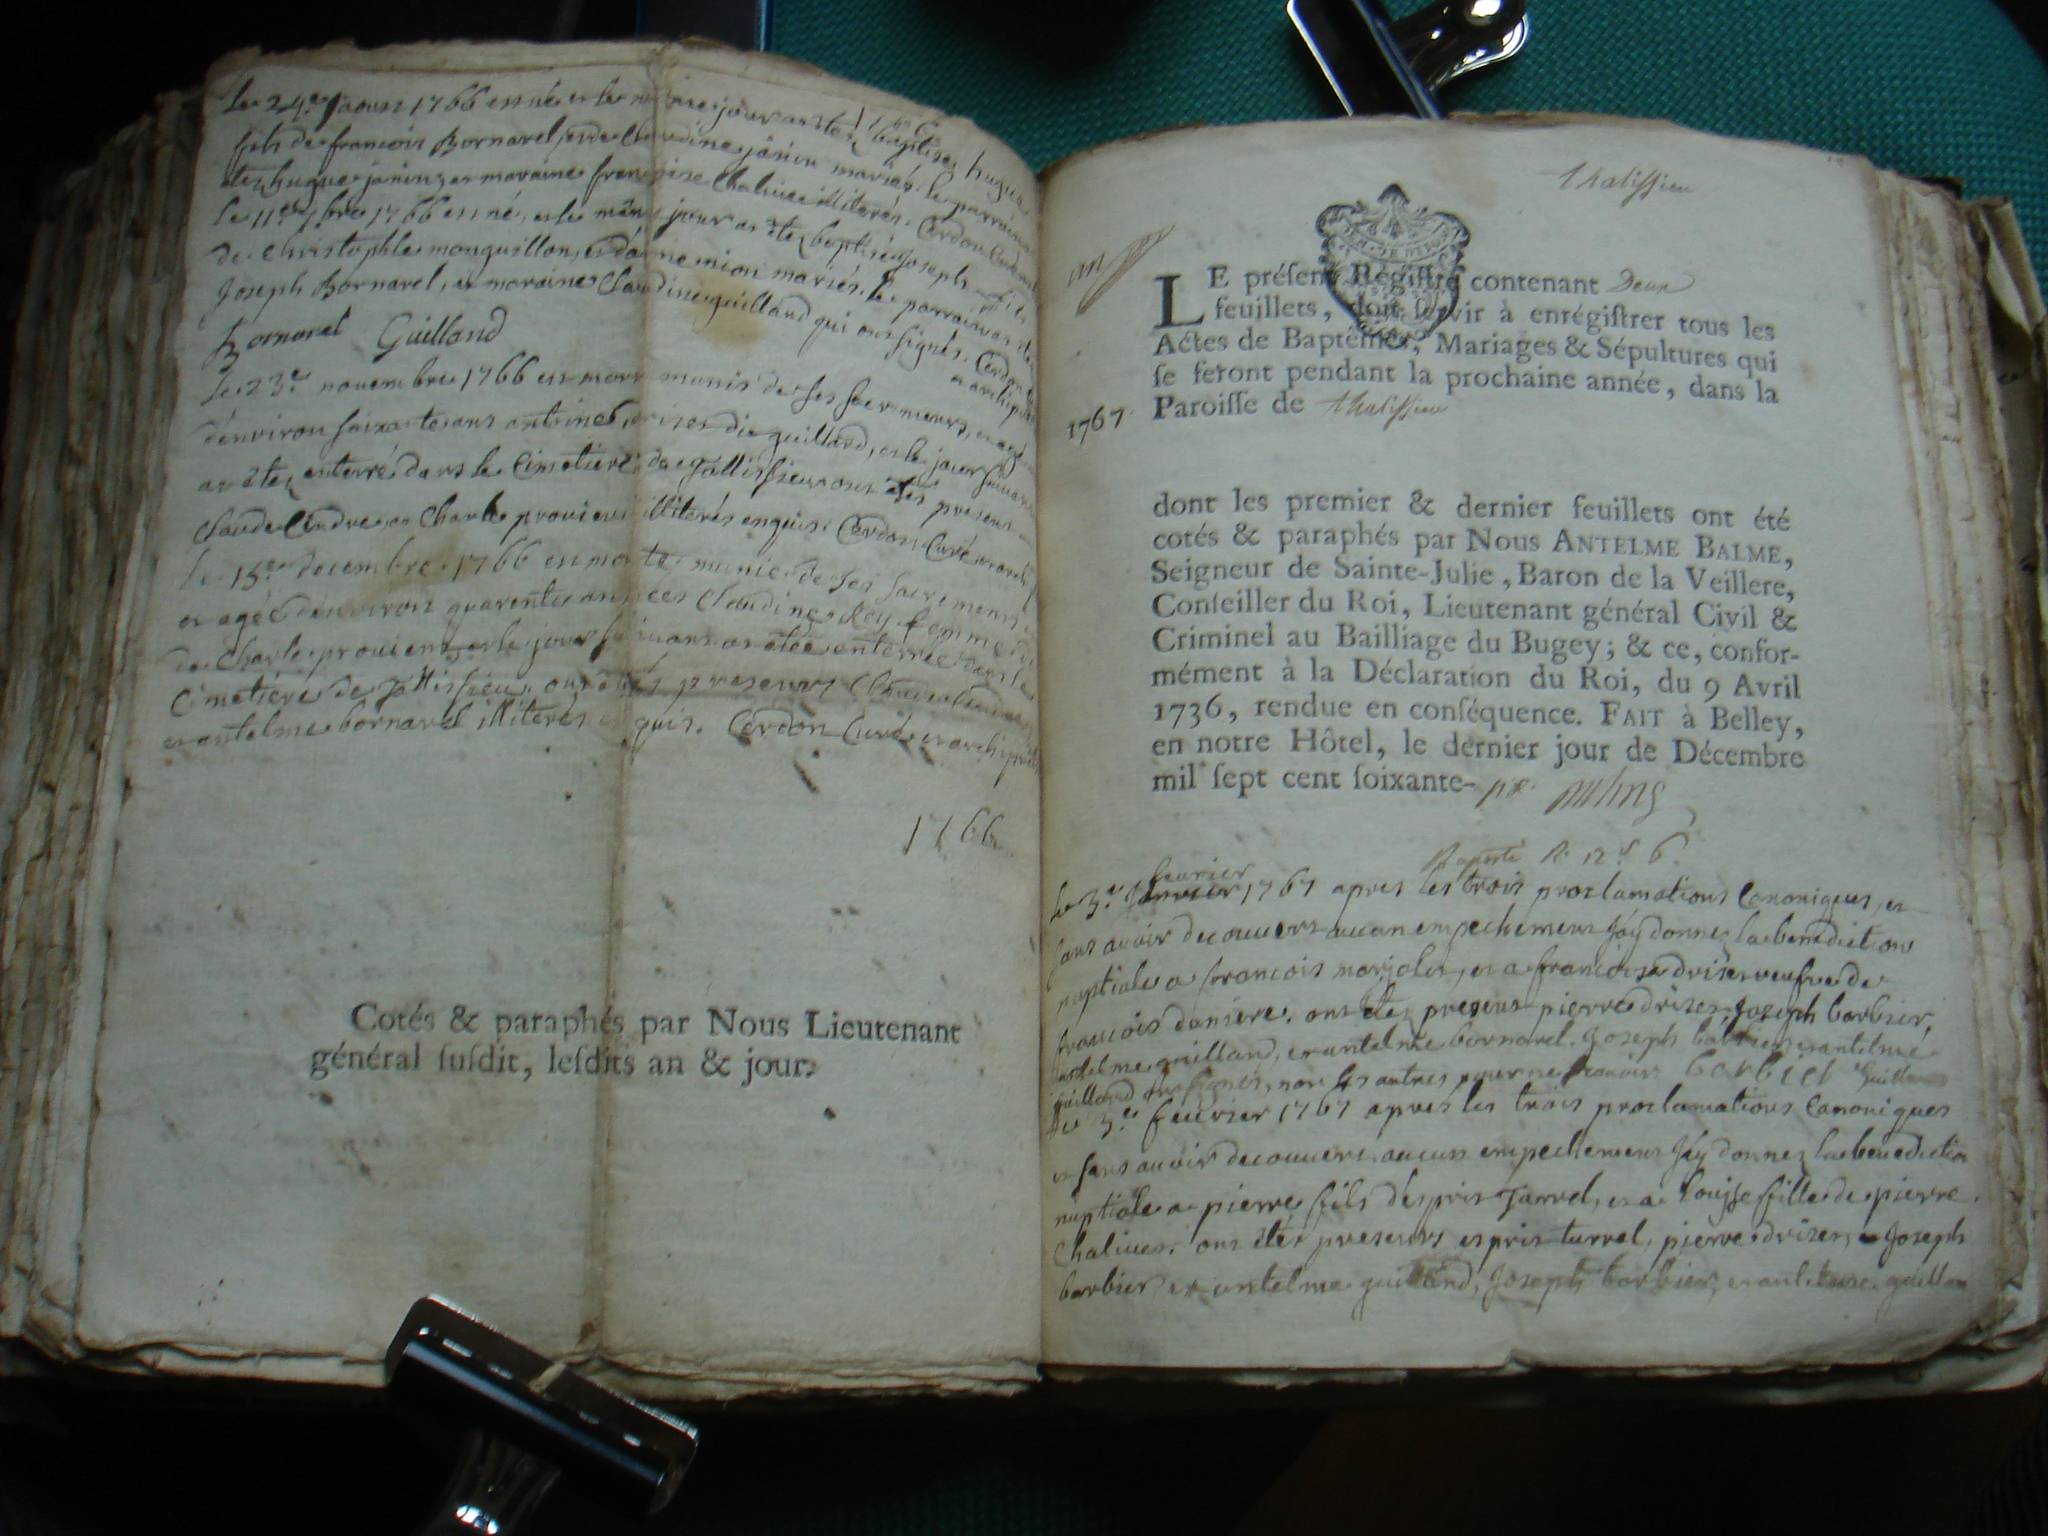 Le 24.e aoust 1766 est né et le même jour a eté baptisé hugue
fils de francois Bornarel, et de Claudine janin mariés. le parrain a
eté hugue janin, et maraine françoise Chalive illiterés. Cerdon Curé
le 11.e 7.bre 1766 est né, et le même jour a eté baptisé joseph fils
de Christophle monguillon, et d'anne mion mariés. le parrain a eté
Joseph Bornarel, et maraine Claudine guilland qui ont signés. Cerdon
et archiprêtre
Bornarel Guilland
le 23.e novembre 1766 est mort munis de ses sacremens, et agé
d'environ soixante ans antoine drizet dit guilland, et le jour suivant
a eté enterré dans le Cimetiere de Tallissieu ont etés presens
Claude Cindre et Charle provien illiterés enquis. Cerdon Curé et arch
le 15.e decembre 1766 est morte munie de ses sacremens
et agée d'environ quarente années Claudine Rey femme
de Charle provient et le jour suivant a etée enterrée dans le
Cimetiere de Tallissieu. ont etés presens Claude
et antelme bornarel illiterés enquis. Cerdon Curé et archiprêtre
1766
Cotés & paraphés par Nous Lieutenant
général susdit, lesdits an & jour.
thalissieu
un
LE présent Régistre contenant Deux
feuillets, doit servir à enrégistrer tous les
Actes de Baptêmes, Mariages & Sépultures qui
se feront pendant la prochaine année, dans la
1767 Paroisse de thalissieu
dont les premier & dernier feuillets ont été
cotés & paraphés par Nous ANTELME BALME,
Seigneur de Sainte-Julie, Baron de la Veillere,
Conseiller du Roi, Lieutenant général Civil &
Criminel au Bailliage du Bugey; & ce, confor-
mément à la Déclaration du Roi, du 9 Avril
1736, rendue en conséquence. FAIT à Belley,
en notre Hôtel, le dernier jour de Décembre
mil sept cent soixante-
fevrier
le 3.e janvier 1767 apres les trois proclamations Canoniques, et
sans avoir decouvert aucun empechement j'ay donnez la benediction
nuptiale a francois marjolet, et a francoise drizet veufve de
francois daniere. ont etez presens pierre drizet, joseph barbier,
antelme guilland, et antelme bornarel. joseph barbier et antelme
guilland ont signés, non les autres pour ne sçavoir. barbier Guilland
le 3.e fevrier 1767 apres les trois proclamations Canoniques
et sans avoir decouvert aucun empechement j'ay donnez la benediction
nuptiale a pierre fils d'esprit Turrel, et a louise fille de pierre
Chalives. ont étés presents esprit turrel, pierre drizet, joseph
barbier et antelme guilland, joseph barbier, et antelme guillan